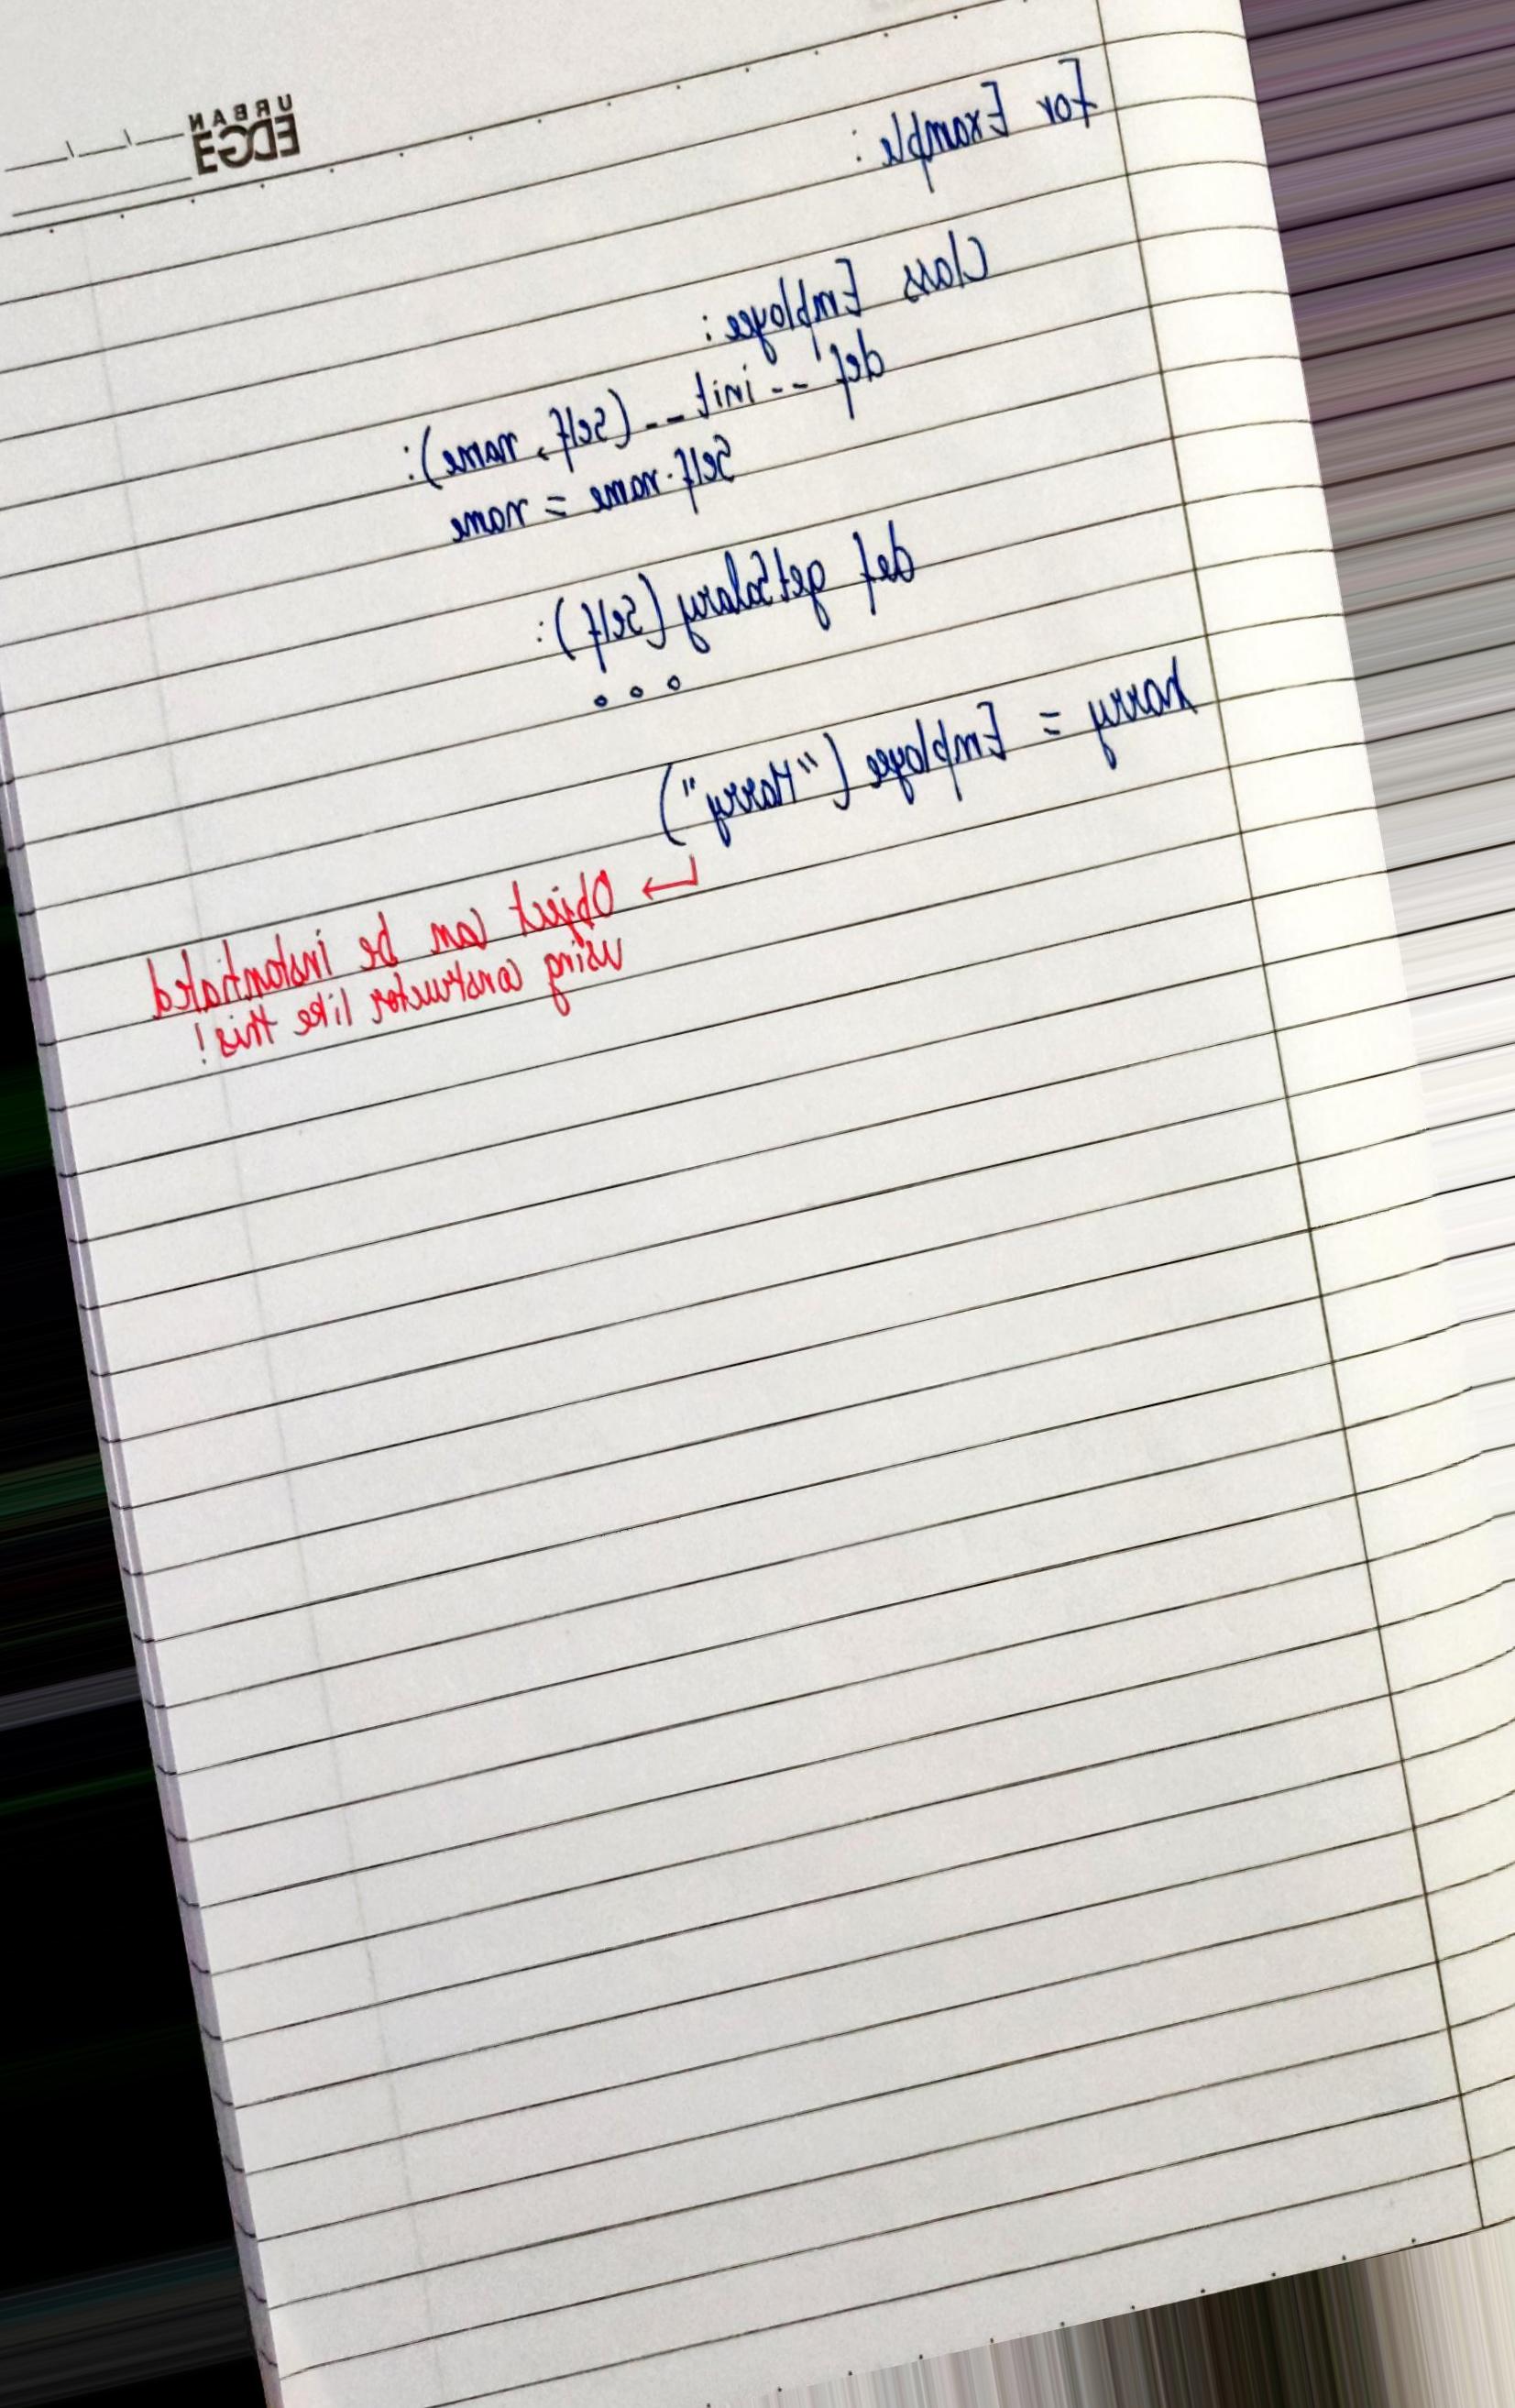 URBAN
EDGE
For Example :
Class Employee :
def __init__(self, name):
self.name = name
def getSalary(self):
...
harry = Employee("Harry")
↳ Object can be instantiated
using constructor like this!